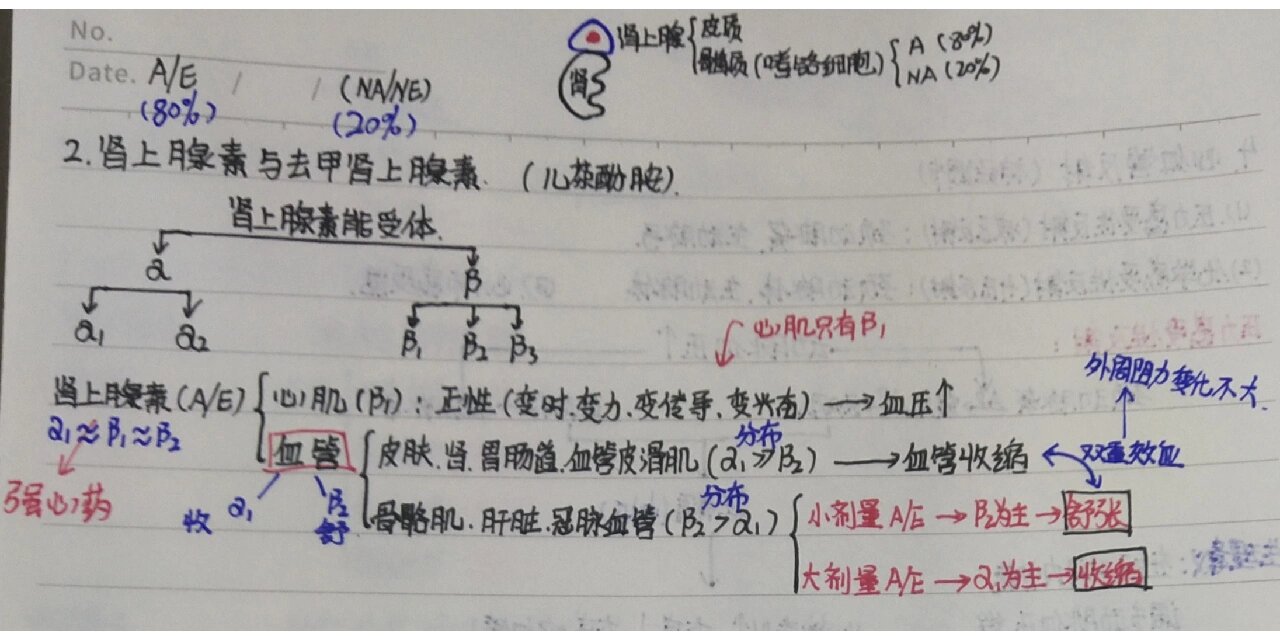 No.
Date. A/E / / (NA/NE)
(80%) (20%)
肾上腺 { 皮质
髓质 (嗜铬细胞) { A (80%)
NA (20%)
肾
2. 肾上腺素与去甲肾上腺素. (儿茶酚胺).
肾上腺素能受体.
α β
α1 α2 β1 β2 β3
心肌只有β1
外周阻力变化不大.
肾上腺素 (A/E) { 心肌 (β1) : 正性 (变时.变力.变传导.变兴奋) → 血压↑
α1≈β1≈β2
分布
血管 { 皮肤.肾.胃肠道.血管平滑肌.(α1≫β2) → 血管收缩 双重效应
强心药
收 α1 β2 舒
分布
骨骼肌.肝脏.冠脉血管 (β2>α1) { 小剂量 A/E → β2为主 → 舒张
大剂量 A/E → α1为主 → 收缩